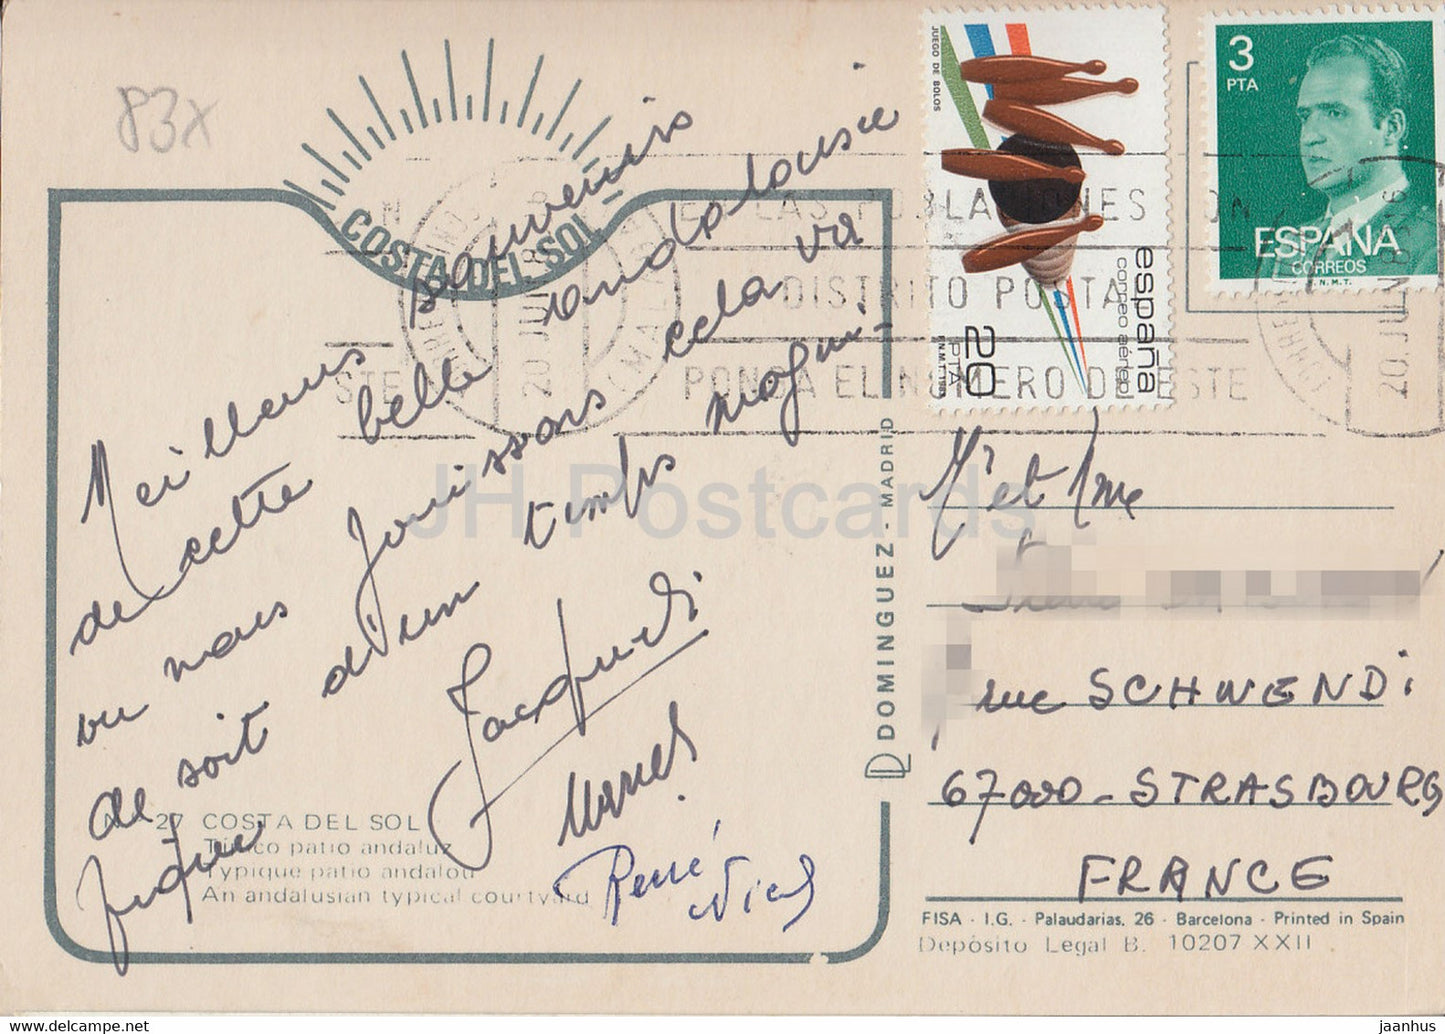 83x
COSTA DEL SOL
Meilleurs souvenirs
de cette belle andalousie
ou nous jouissons cela va
de soit d'un temps magni-
fique
Jacques
René
Nº 27 COSTA DEL SOL
Típico patio andaluz
Typique patio andalou
An andalusian typical courtyard
DOMINGUEZ - MADRID
JUEGO DE BOLOS
españa
correo aéreo
20 PTA
3
PTA
ESPAÑA
CORREOS
F.N.M.T.
EN LAS POBLACIONES CON
DISTRITO POSTAL
PONGA EL NUMERO DE ESTE
20 JUN
MALAGA
et Mme
rue SCHWENDi
67000 - STRASBOURG
FRANCE
FISA - I.G. - Palaudarias, 26 - Barcelona - Printed in Spain
Depósito Legal B. 10207 XXII
JH Postcards
https://jhpostcards.com
jaanhus